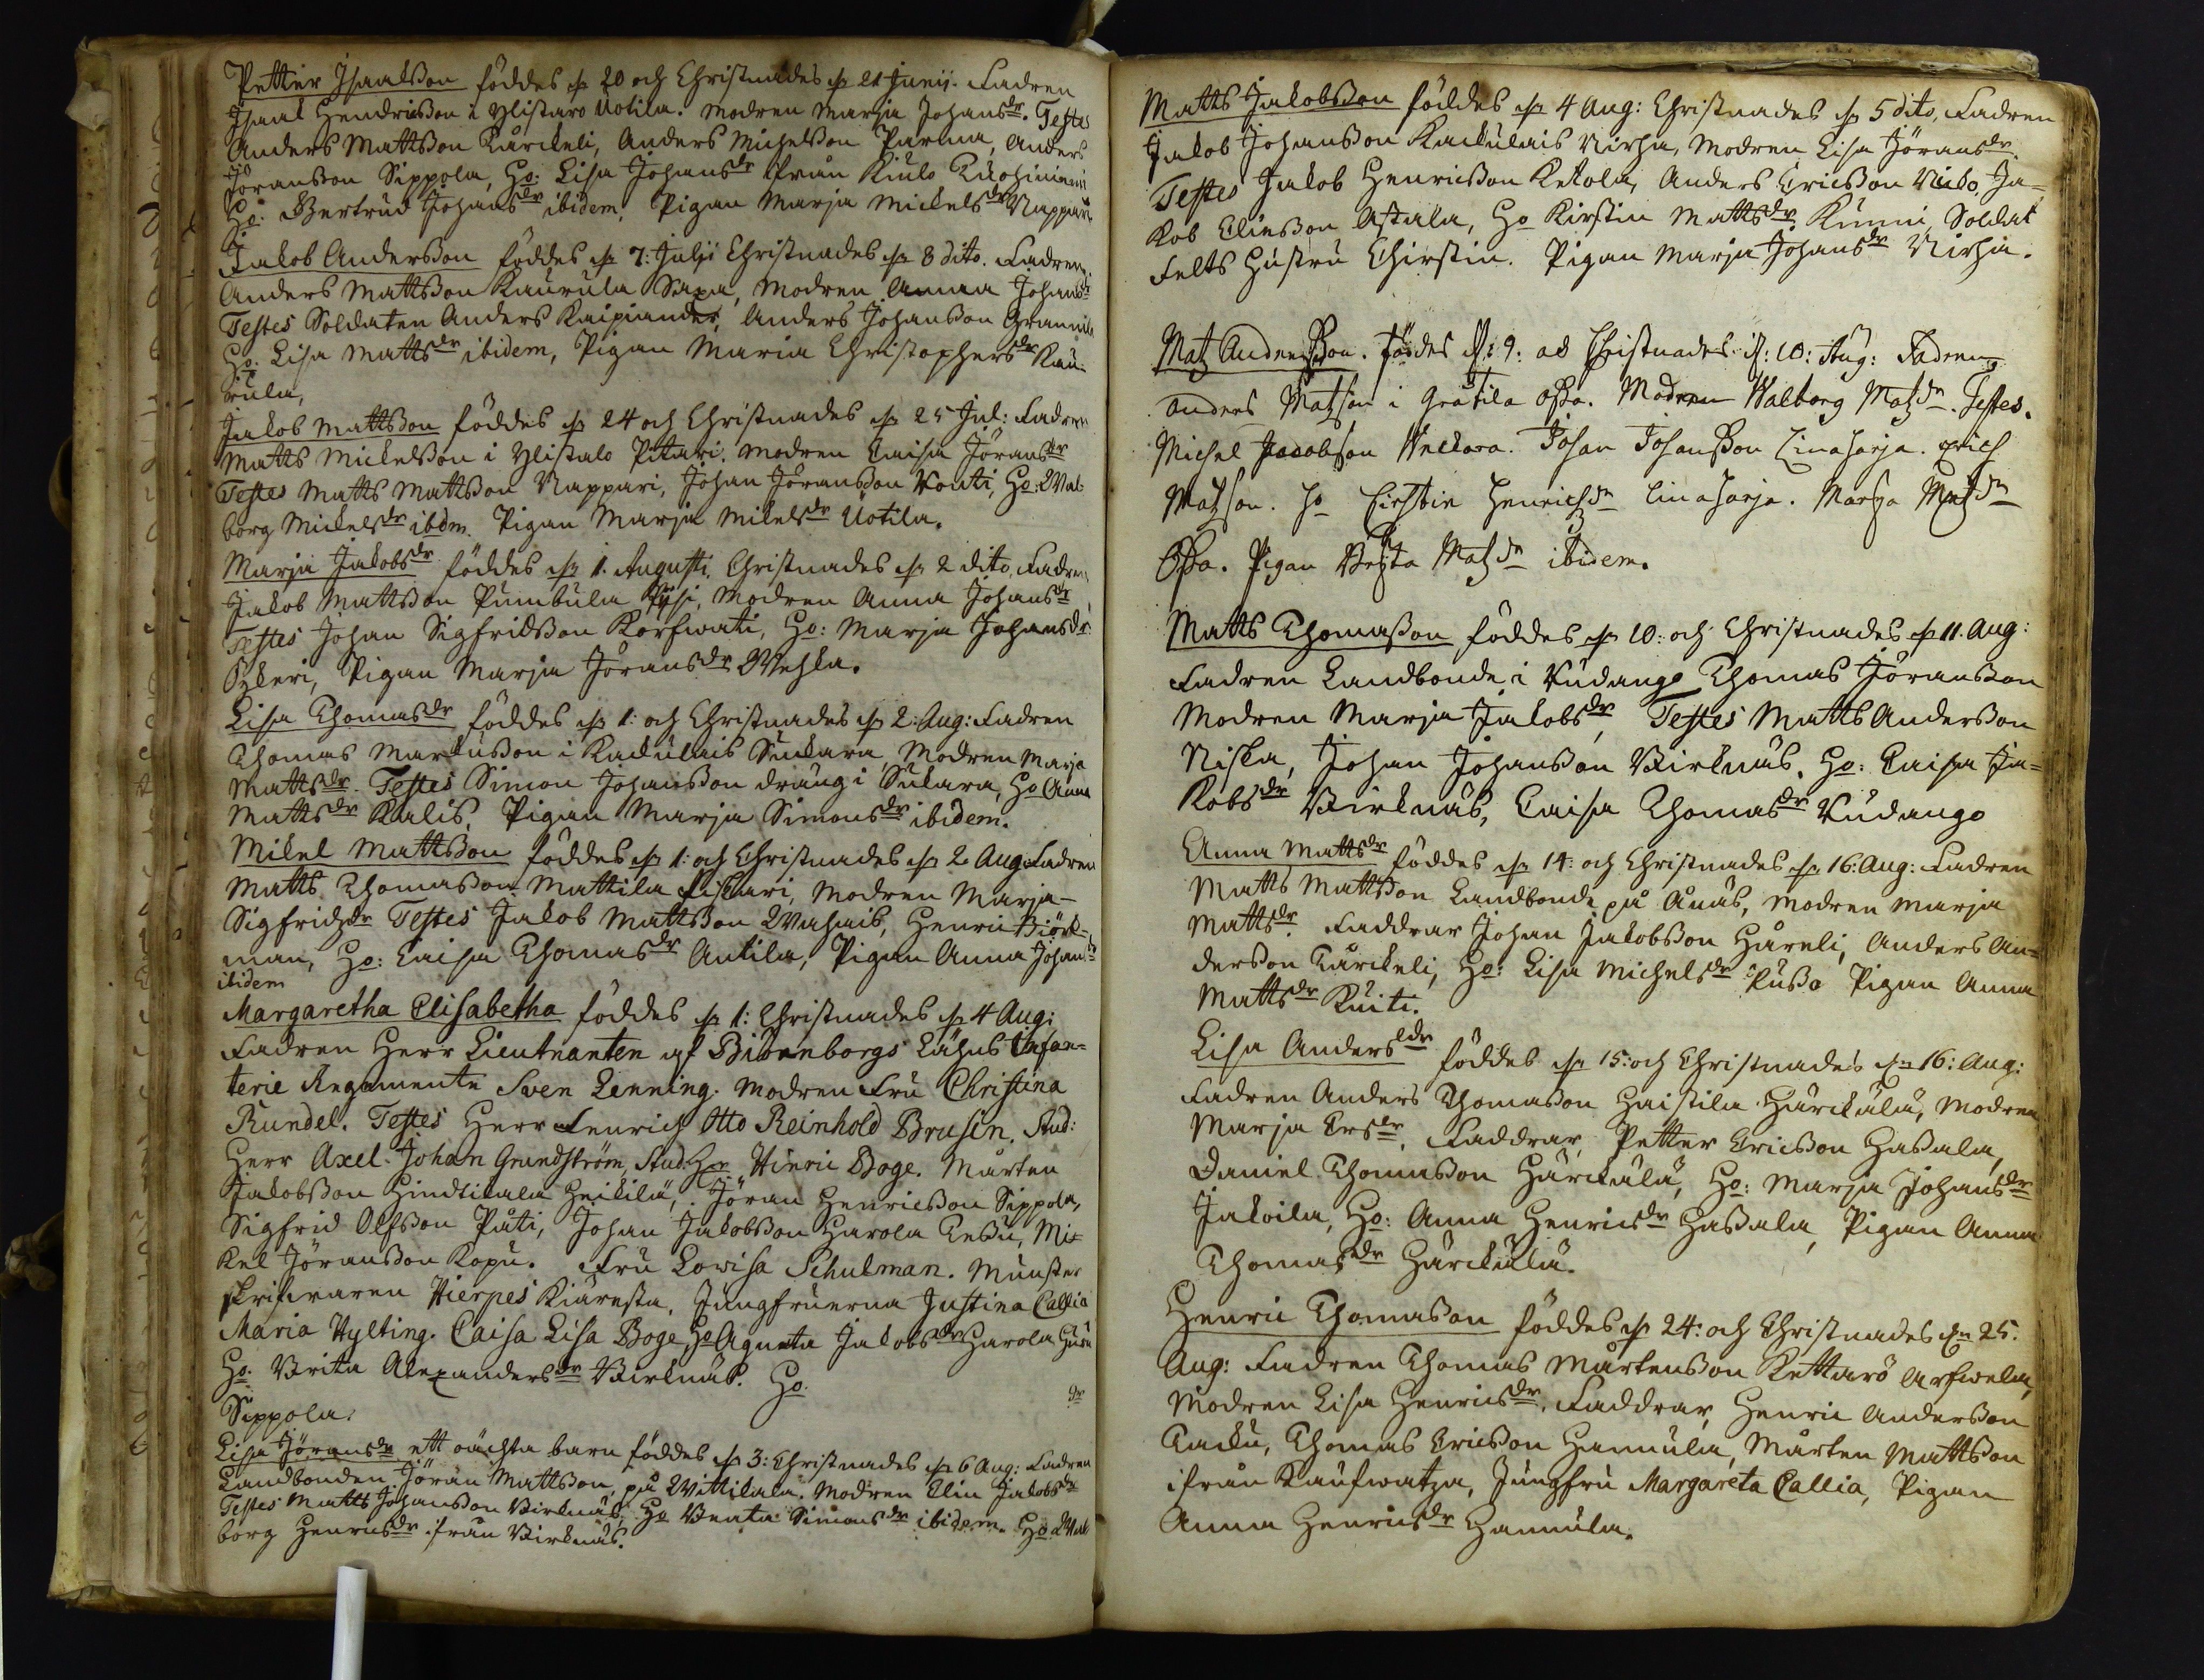 Petter Isaaksson föddes d 20 och Christnades d 21 Junii. Fadren
Isaak Hendricsson i Ylistaro Uotila. Modren Marja Johansdr. Testes
Anders Mattsson Kårckeli, Anders Michelsson Parma, Anders
Jöransson Sippola, Ho: Lisa Johansdr från Kiulo
Ho: Gertrud Johansdr ibidem, Pigan Marja Mickelsdr Nappari
Jakob Andersson föddes d 7: Julii Christnades d 8 dito. Fadren
Anders Mattsson Kaurula Saxa, Modren Anna Johansdr
Testes Soldaten Anders Kaipiander, Anders Johansson Grannila
Ho: Lisa Mattsdr ibidem, Pigan Maria Christophersdr Kau-
rula,
Jakob Mattsson föddes d 24 och Christnades d 25 Jul: Fadren
Matts Mickelsson i Ylistalo Pitari. Modren Caisa Jöransdr
Testes Matts Mattsson Nappari, Johan Jöransson Kouti, Ho: Wal-
borg Mickelsdr ibdm. Pigan Marja Mikelsdr Uotila.
Marja Jakobsdr föddes d 1. Augusti. Christnades d 2 dito, Fadren
Jakob Mattsson Pumbula Pysi, Modren Anna Johansdr
Testes Johan Sigfridsson Korfwati, Ho: Marja Johansdr
Pigan Marja Jöransdr Wehka.
Lisa Thomasdr föddes d 1: och Christnades d 2: Aug: Fadren
Thomas Markusson i Kackulais Sukara, Modren Marja
Mattsdr. Testes Simon Johansson dräng i Sukara, Ho Anna
Mattsdr Kalis, Pigan Marja Simonsdr ibidem.
Mikel Mattsson föddes d 1: och Christnades d 2 Aug: Fadren
Matts Thomasson Mattila Piskari, Modren Marja
Sigfridsdr Testes Jakob Mattsson Wahais, Henric Björk-
man, Ho: Caisa Thomasdr Antila, Pigan Anna Johansdr
ibidem
Margaretha Elisabetha föddes d 1: Christnades d 4 Aug:
Fadren Herr Lieutnanten af Biörneborgs Lähns Infan-
terie Regemente Sven Lenning. Modren Fru Christina
Rundel. Testes Herr Fenrich Otto Reinhold Brusin. Stud:
Herr Axel Johan Grundström, Stud. Hr Hinric Boge. Mårten
Jakobsson Hindtikala Heikilä, Jöran Henricsson Sippola,
Sigfrid Olfsson Puti, Johan Jakobsson Harola Eessu, Mi-
kel Jöransson Kopu. Fru Lovisa Schulman. Munster
skrifwaren Hierpes Kiäresta, Jungfruerna Justina Callia
Maria Hylting. Caisa Lisa Boge, Ho Agneta Jakobsdr Harola
Ho: Brita Alexandersdr Birknäs. Ho.
dr
Sippola.
Lisa Jöransdr ett oächta barn föddes d 3: Christnades d 6 Aug: Fadren
Landbonden Jöran Mattsson, på Wittikala. Modren Elin Jakobsdr
Testes Matts Johansson Birknäs, Ho Beata Simonsdr ibidem. Ho Wal
borg Henricsdr från Birknäs.
Matts Jakobsson föddes d 4 Aug: Christnades d 5 dito, Fadren
Jakob Johansson Kackulais Nirha, Modren Lisa Jöransdr.
Testes Jakob Henricsson Ketola, Anders Ericsson Ja-
kob Eliesson Astala, Ho Kirstin Mattsdr Kunni, Soldat
Felts Hustru Chirstin. Pigan Marja Johansdr Nirha.
Matz Andersson. Föddes d: 9: ock Christnades d: 10: Aug: Fadren,
Anders Matzson i Gråtila Ossa. Modren Walborg Matzdr. Testes.
Michel Jacobson Weckara. Johan Johansson Linaharja. Erich
Matzson. Ho Chirstin Henrichsdr Linaharja. Marcta Matzdr
Ossa. Pigan Beata Matzdr ibidem.
Matts Thomasson föddes d 10: och Christnades d 11. Aug:
Fadren Landbonde i Kudango Thomas Jöransson
Modren Marja Jakobsdr, Testes Matts Andersson
Niska, Johan Johansson Birknäs, Ho: Caisa Ja=
kobsdr Birknäs, Caisa Thomasdr Kudango
Anna Mattsdr föddes d 14: och Christnades d 16: Aug: Fadren
Matts Mattsson Landbonde på Anäs, Modren Marja
Mattsdr. Faddrar Johan Jakobsson Hureli, Anders An-
dersson Kårckeli, Ho: Lisa Michelsdr Pusso Pigan Anna
Mattsdr Kuiti.
Lisa Andersdr föddes d 15: och Christnades d 16: Aug:
Fadren Anders Thomasson Haistila Härckälä, Modren
Marja Ersdr. Faddrar, Petter Ericsson Hassala,
Daniel Thomasson Härckälä, Ho: Marja Johansdr
Jakoila, Ho: Anna Henricsdr Hassala, Pigan Anna
Thomasdr Härckälä.
Henric Thomasson föddes d 24: och Christnades d 25.
Aug: Fadren Thomas Mårtensson Kettarö Arfwela,
Modren Lisa Henricsdr, Faddrar, Henric Andersson
Tacku, Thomas Ericsson Hannula, Mårten Mattsson
ifrån Kaufwatza, Jungfru Margareta Callia, Pigan
Anna Henricsdr Hannula.